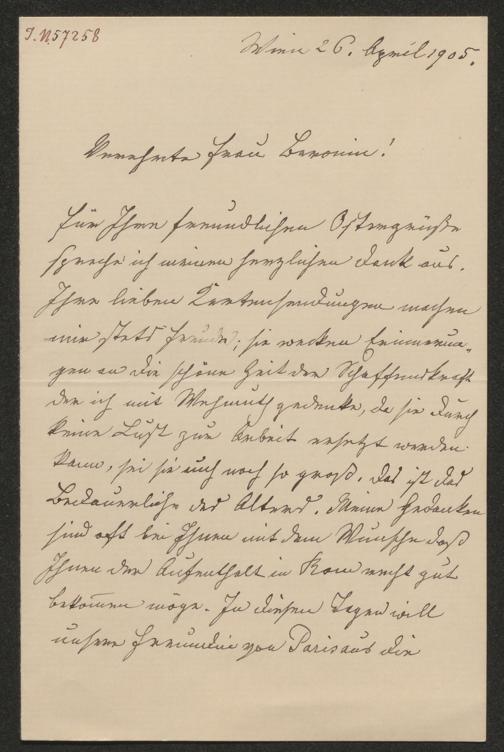 J.N. 57258
Wien 26. April 1905.
Verehrte Frau Baronin!
Für Ihre freundlichen Ostergrüße
spreche ich meinen herzlichen Dank aus.
Ihre lieben Kartensendungen machen
mir stets Freude; sie wecken Erinnerun-
gen an die schöne Zeit der Schaffenskraft
der ich mit Wehmuth gedenke, da sie durch
keine Lust zur Arbeit ersetzt werden
kann, sei sie auch noch so groß. Das ist das
Bedauerliche des Alters. Meine Gedanken
sind oft bei Ihnen mit dem Wunsche daß
Ihnen der Aufenthalt in Rom recht gut
bekommen möge. In diesen Tagen will
unsere Freundin von Paris aus die